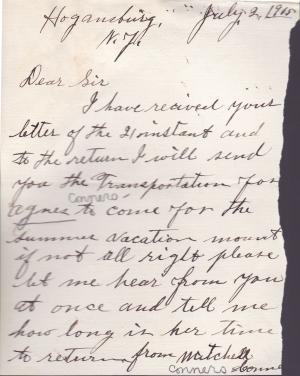 Hogansburg, July 2, 1915
N.Y.
Dear Sir
I have recived your
letter of the 21 instant and
to the return I will send
you the Transportation for
Conners
Agnes to come for the
Summer vacation
if not all right please
let me hear from you
at once and tell me
how long is her time
to return from Mitchell
Conners